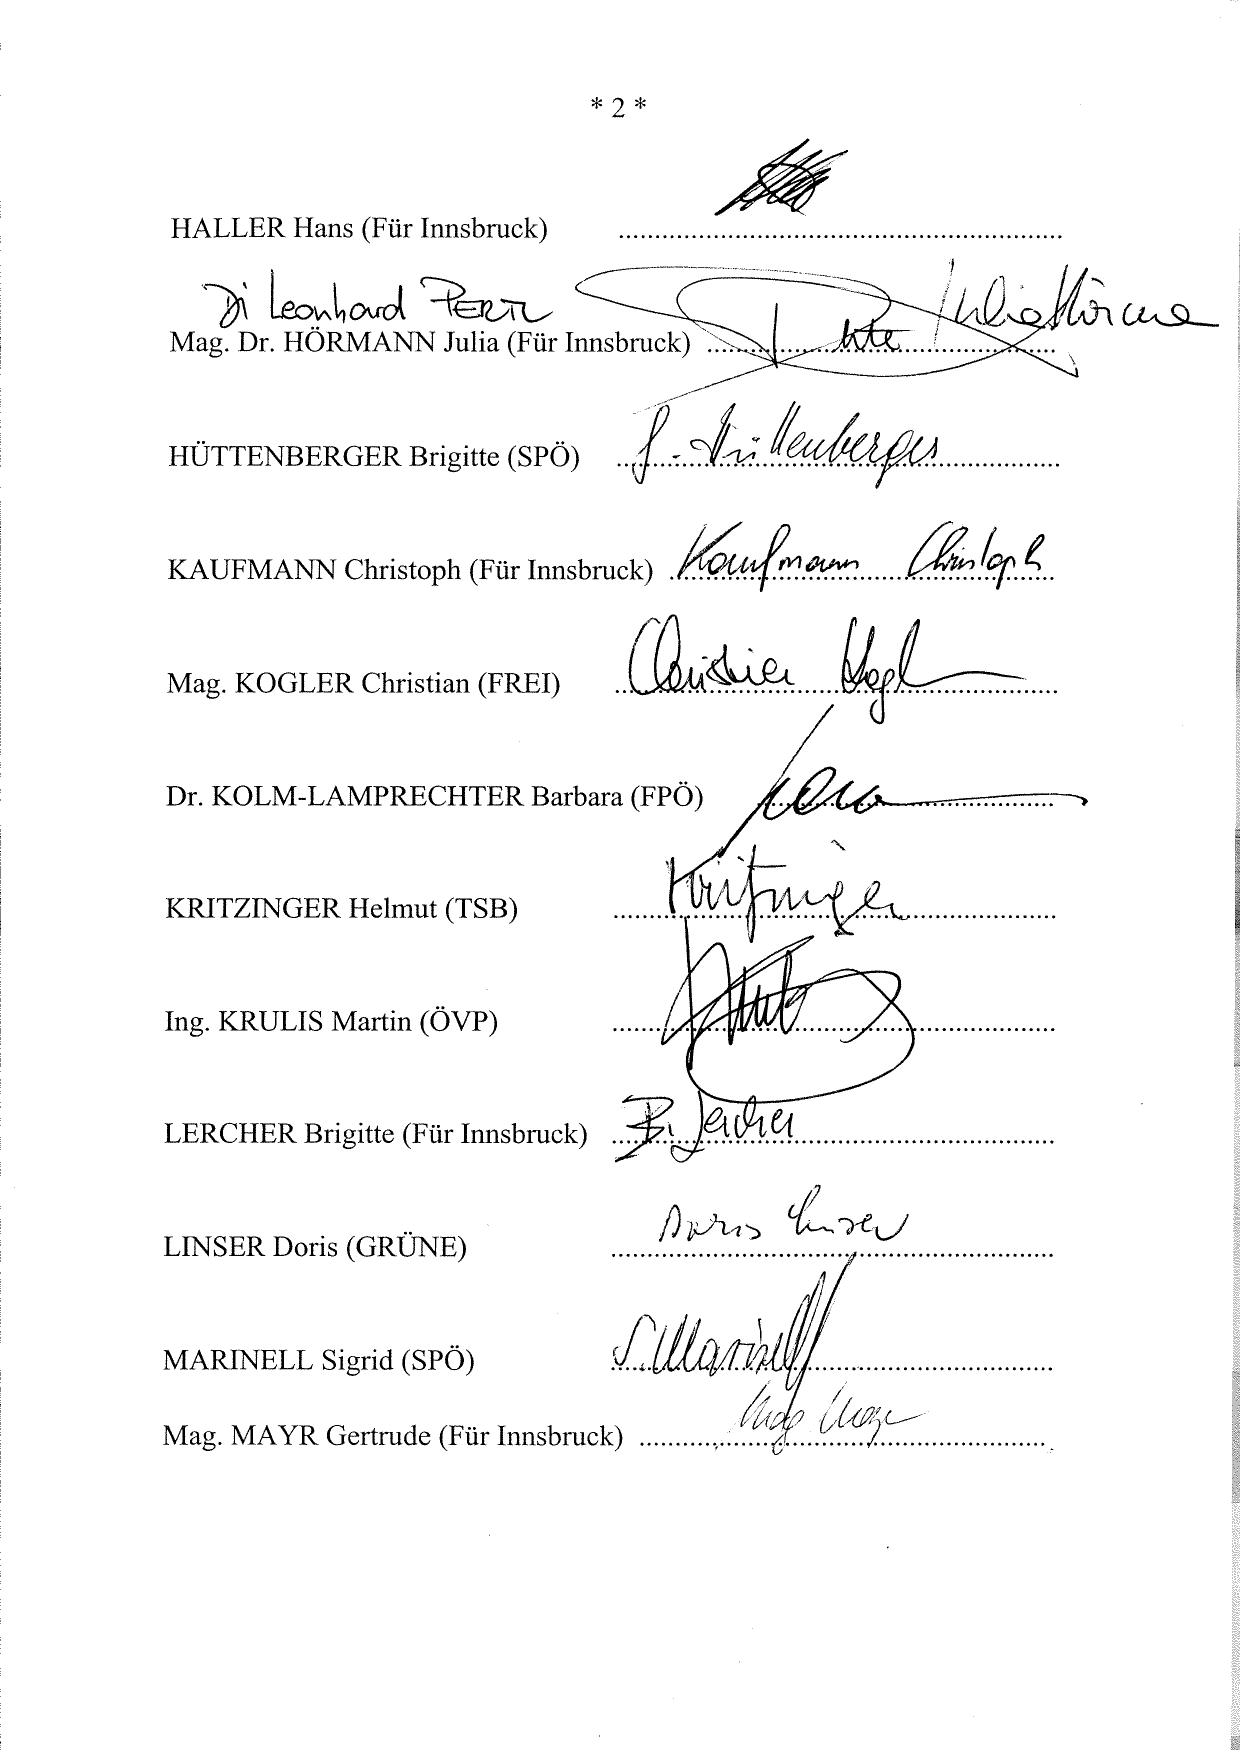 * 2 *
HALLER Hans (Für Innsbruck) ............................................................
Di Leonhard PERTL
Mag. Dr. HÖRMANN Julia (Für Innsbruck) ............................................... Julia Hörmann
HÜTTENBERGER Brigitte (SPÖ) ............................................................ Hüttenberger
KAUFMANN Christoph (Für Innsbruck) .................................................... Kaufmann Christoph
Mag. KOGLER Christian (FREI) ............................................................ Christian Kogl
Dr. KOLM-LAMPRECHTER Barbara (FPÖ) ........................................
KRITZINGER Helmut (TSB) ............................................................ Kritzinger
Ing. KRULIS Martin (ÖVP) ............................................................
LERCHER Brigitte (Für Innsbruck) ............................................................ B. Lercher
LINSER Doris (GRÜNE) ............................................................ Doris Linser
MARINELL Sigrid (SPÖ) ............................................................ S. Marinell
Mag. MAYR Gertrude (Für Innsbruck) .......................................................